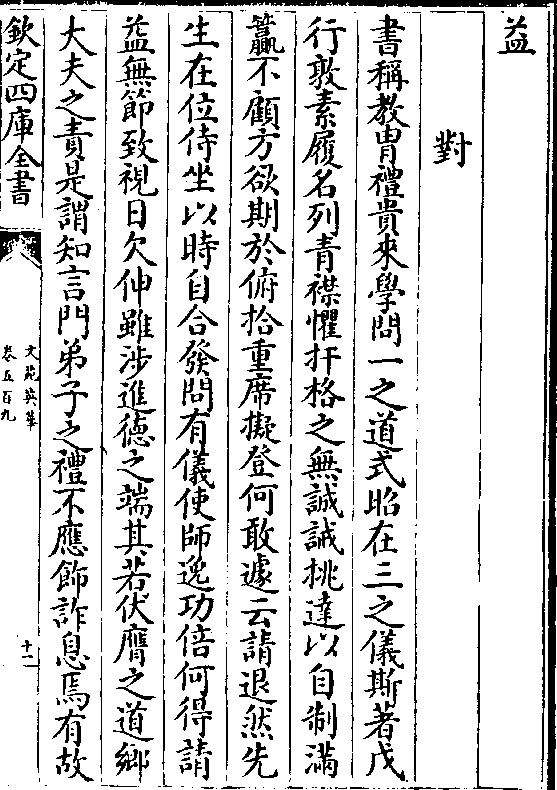 益
對
書稱教胄禮貴來學問一之道式昭在三之儀斯著戊
行敦素履名列青襟懼扞格之無誠誡挑達以自制滿
籯不顧方欲期於俯拾重席擬登何敢遽云請退然先
生在位侍坐以時自合發問有儀使師逸功倍何得請
益無節致視日欠伸雖涉進德之端其若伏膺之道鄉
大夫之責是謂知言門弟子之禮不應飾詐息焉有故
欽定四庫全書
文苑英華
卷五百九
十二